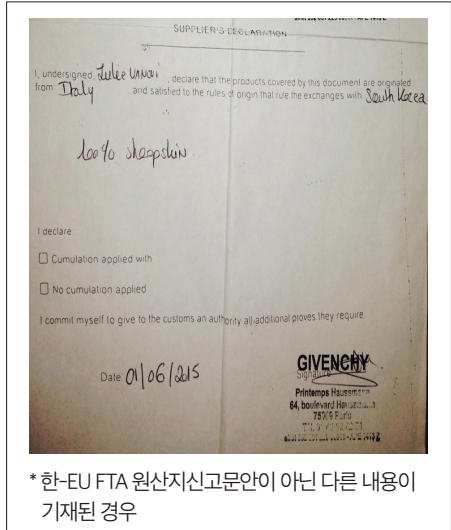 SUPPLIER'S DECLARATION
I, undersigned, Julie , declare that the products covered by this document are originated
from Italy and satisfied to the rules of origin that rule the exchanges with South Korea
100% sheepskin
I declare
Cumulation applied with
No cumulation applied
I commit myself to give to the customs an authority all additional proves they require
Date 01/06/2015
GIVENCHY
Signature
Printemps Haussmann
64, boulevard Haussmann
75009 Paris
* 한-EU FTA 원산지신고문안이 아닌 다른 내용이
기재된 경우